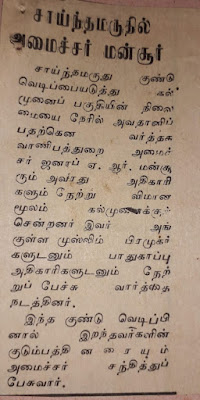 சாய்ந்தமருதில்
அமைச்சர் மன்சூர்
சாய்ந்தமருது குண்டு
வெடிப்பையடுத்து கல்
முனைப் பகுதியின் நிலை
மையை நேரில் அவதானிப்
பதற்கென வர்த்தக
வாணிபத்துறை அமைச்
சர் ஜனாப் ஏ. ஆர். மன்சூ
ரும் அவரது அதிகாரி
களும் நேற்று விமான
மூலம் கல்முனைக்குச்
சென்றனர் இவர் அங்
குள்ள முஸ்லிம் பிரமுகர்
களுடனும் பாதுகாப்பு
அதிகாரிகளுடனும் நேற்
றுப் பேச்சு வார்த்தை
நடத்தினர்.
இந்த குண்டு வெடிப்பி
னால் இறந்தவர்களின்
குடும்பத்தினரையும்
அமைச்சர் சந்தித்துப்
பேசுவார்.